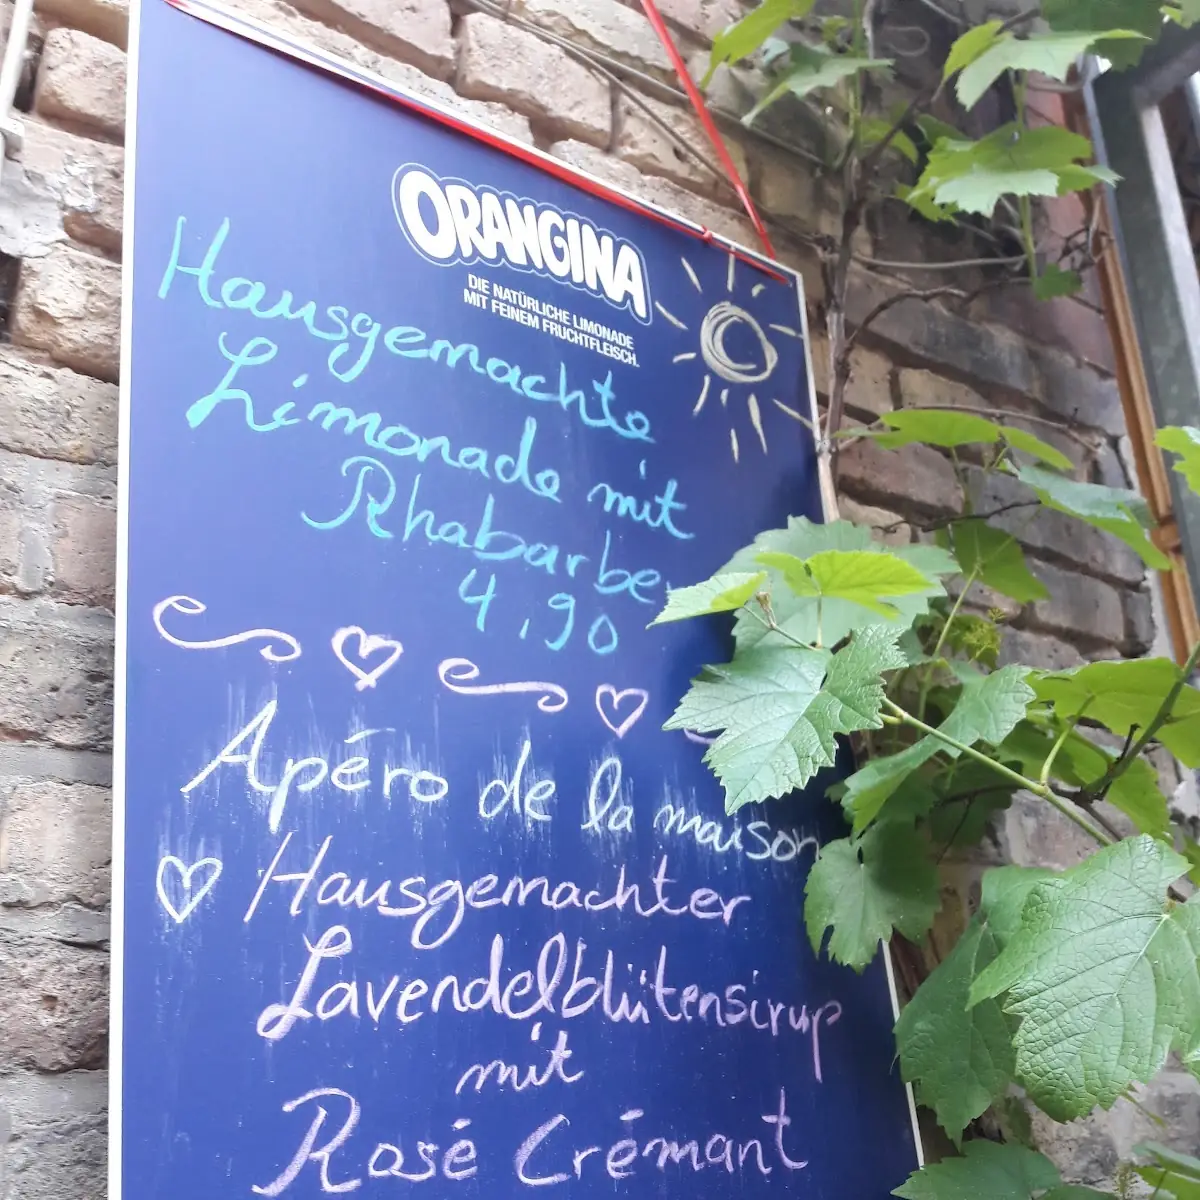 ORANGINA
DIE NATÜRLICHE LIMONADE
MIT FEINEM FRUCHTFLEISCH.
Hausgemachte
Limonade mit
Rhabarber
4,90
Apéro de la maison
Hausgemachter
Lavendelblütensirup
mit
Rosé Crémant